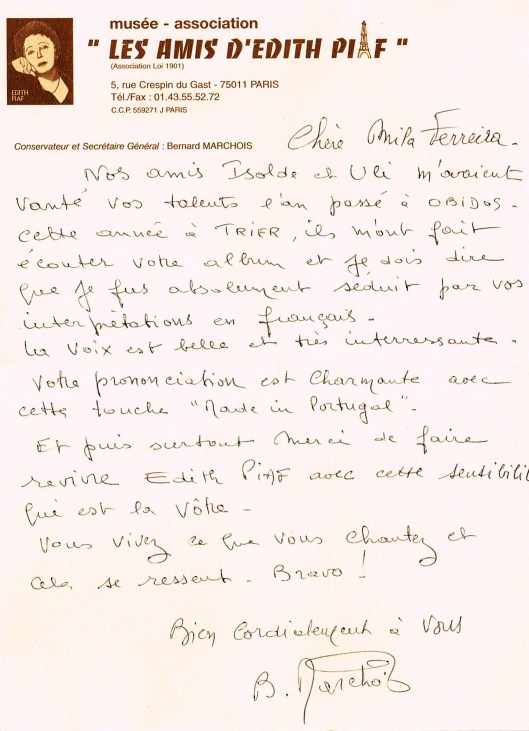 musée - association
" LES AMIS D'EDITH PIAF "
(Association Loi 1901)
EDITH
PIAF
5, rue Crespin du Gast - 75011 PARIS
Tél./Fax : 01.43.55.52.72
C.C.P. 559271 J PARIS
Conservateur et Secrétaire Général : Bernard MARCHOIS
Chère Mila Ferreira.
Nos amis Isolde et Uli m'avaient
vanté vos talents l'an passé à OBIDOS.
cette année à TRIER, ils m'ont fait
écouter votre album et je dois dire
que je fus absolument séduit par vos
interprétations en français -
La voix est belle et très interressante.
Votre prononciation est charmante avec
cette touche "Made in Portugal".
Et puis surtout merci de faire
revivre Edith PIAF avec cette sensibili
qui est la vôtre -
Vous vivez ce que vous chantez et
cela se ressent. Bravo !
Bien Cordialement à Vous
B. Marchois